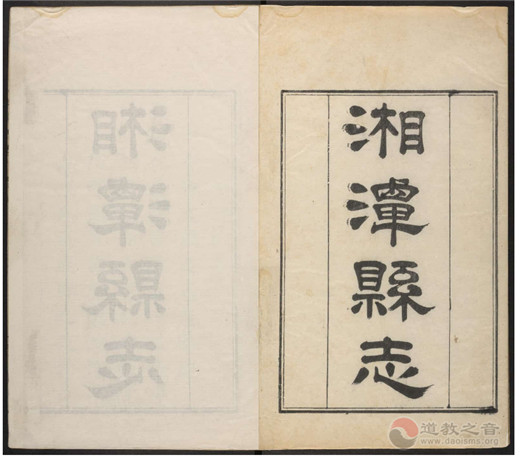 湘潭縣志
道教之音
www.daoisms.org